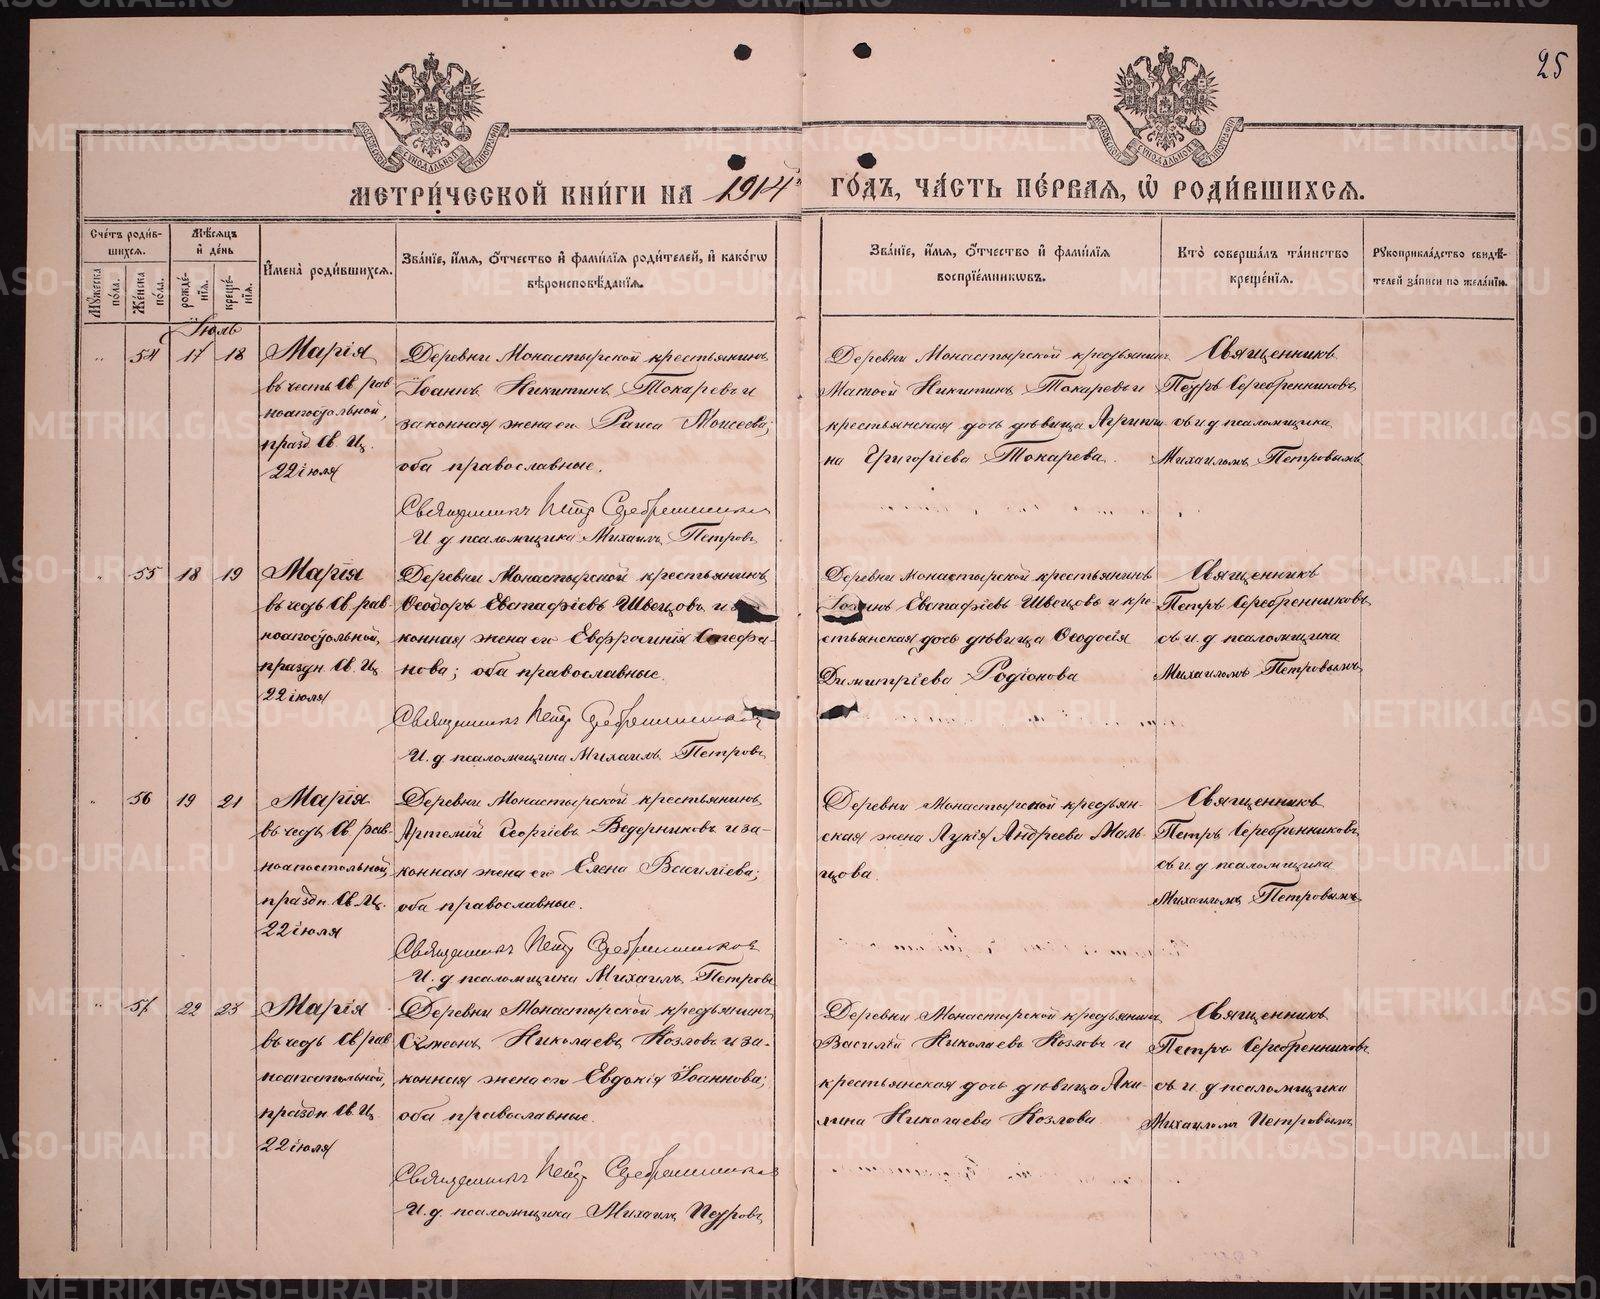 25
МЕТРИ́ЧЕСКОЙ КНИ́ГИ НА 1914й ГО́ДЪ, ЧА́СТЬ ПЕ́РВАЯ, Ѡ҆ РОДИ́ВШИХСЯ.
Сче́тъ роди́в-
шихся.
Му́жеска
по́ла.
Же́нска
по́ла.
Мѣ́сяцъ
и҆ де́нь
рожде́-
нїя.
креще́-
нїя.
И҆мена̀ роди́вшихся.
Зва́нїе, и҆́мя, ѻ҆́тчество и҆ фами́лїя роди́телей, и҆ како́гѡ
вѣроисповѣ́данїя.
Зва́нїе, и҆́мя, ѻ҆́тчество и҆ фами́лїя
воспрїе́мникѡвъ.
Кто̀ соверша́лъ та́инство
креще́нїя.
Рукоприкла́дство свидѣ́-
телей за́писи по жела́нїю.
Іюль
„ 54 17 18
Марія
въ честь Св. рав
ноапостольной,
празд. Св. Ц.
22 іюля
Деревни Монастырской крестьянинъ
Іоаннъ Никитинъ Токаревъ и
законная жена его Раиса Моисеева;
оба православные.
Священникъ Петр Серебренников
И. д. псаломщика Михаилъ Петровъ
Деревни Монастырской крестьянинъ
Матѳей Никитинъ Токаревъ и
крестьянская дочь дѣвица Агрипи-
на Григоріева Токарева.
Священникъ
Петръ Серебренниковъ
съ и. д. псаломщика
Михаиломъ Петровымъ
„ 55 18 19
Марія
въ честь Св. рав-
ноапостольной,
праздн. Св. Ц.
22 іюля
Деревни Монастырской крестьянинъ
Ѳеодоръ Евстафіевъ Швецовъ и
конная жена его Евфросинія Стефа-
нова; оба православные.
Священникъ Петр Серебренников
И. д. псаломщика Михаилъ Петровъ
Деревни Монастырской крестьянинъ
Іоаннъ Евстафіевъ Швецовъ и кре-
стьянская дочь дѣвица Ѳеодосія
Димитріева Родіонова
Священникъ
Петръ Серебренниковъ
съ и. д. псаломщика
Михаиломъ Петровымъ
„ 56 19 21
Марія
въ честь Св. рав-
ноапостольной,
праздн. Св. Мц.
22 іюля
Деревни Монастырской крестьянинъ
Артемій Георгіевъ Ведерниковъ и за-
конная жена его Елена Василіева;
оба православные.
Священникъ Петр Серебренников
И. д. псаломщика Михаилъ Петровъ
Деревни Монастырской крестьян-
ская жена Лукія Андреева Маль-
цова.
Священникъ
Петръ Серебренниковъ
съ и. д. псаломщика
Михаиломъ Петровымъ
„ 57 22 23
Марія
въ честь Св. рав
ноапостольной,
праздн. Св. Ц.
22 іюля
Деревни Монастырской крестьянинъ
Сѵмеонъ Николаевъ Козловъ и за-
конная жена его Евдокія Іоаннова;
оба православные.
Священникъ Петр Серебренников
И. д. псаломщика Михаилъ Петровъ
Деревни Монастырской крестьянинъ
Василій Николаевъ Козловъ и
крестьянская дочь дѣвица Аки-
лина Николаева Козлова
Священникъ
Петръ Серебренниковъ
съ и. д. псаломщика
Михаиломъ Петровымъ
METRIKI.GASO-URAL.RU